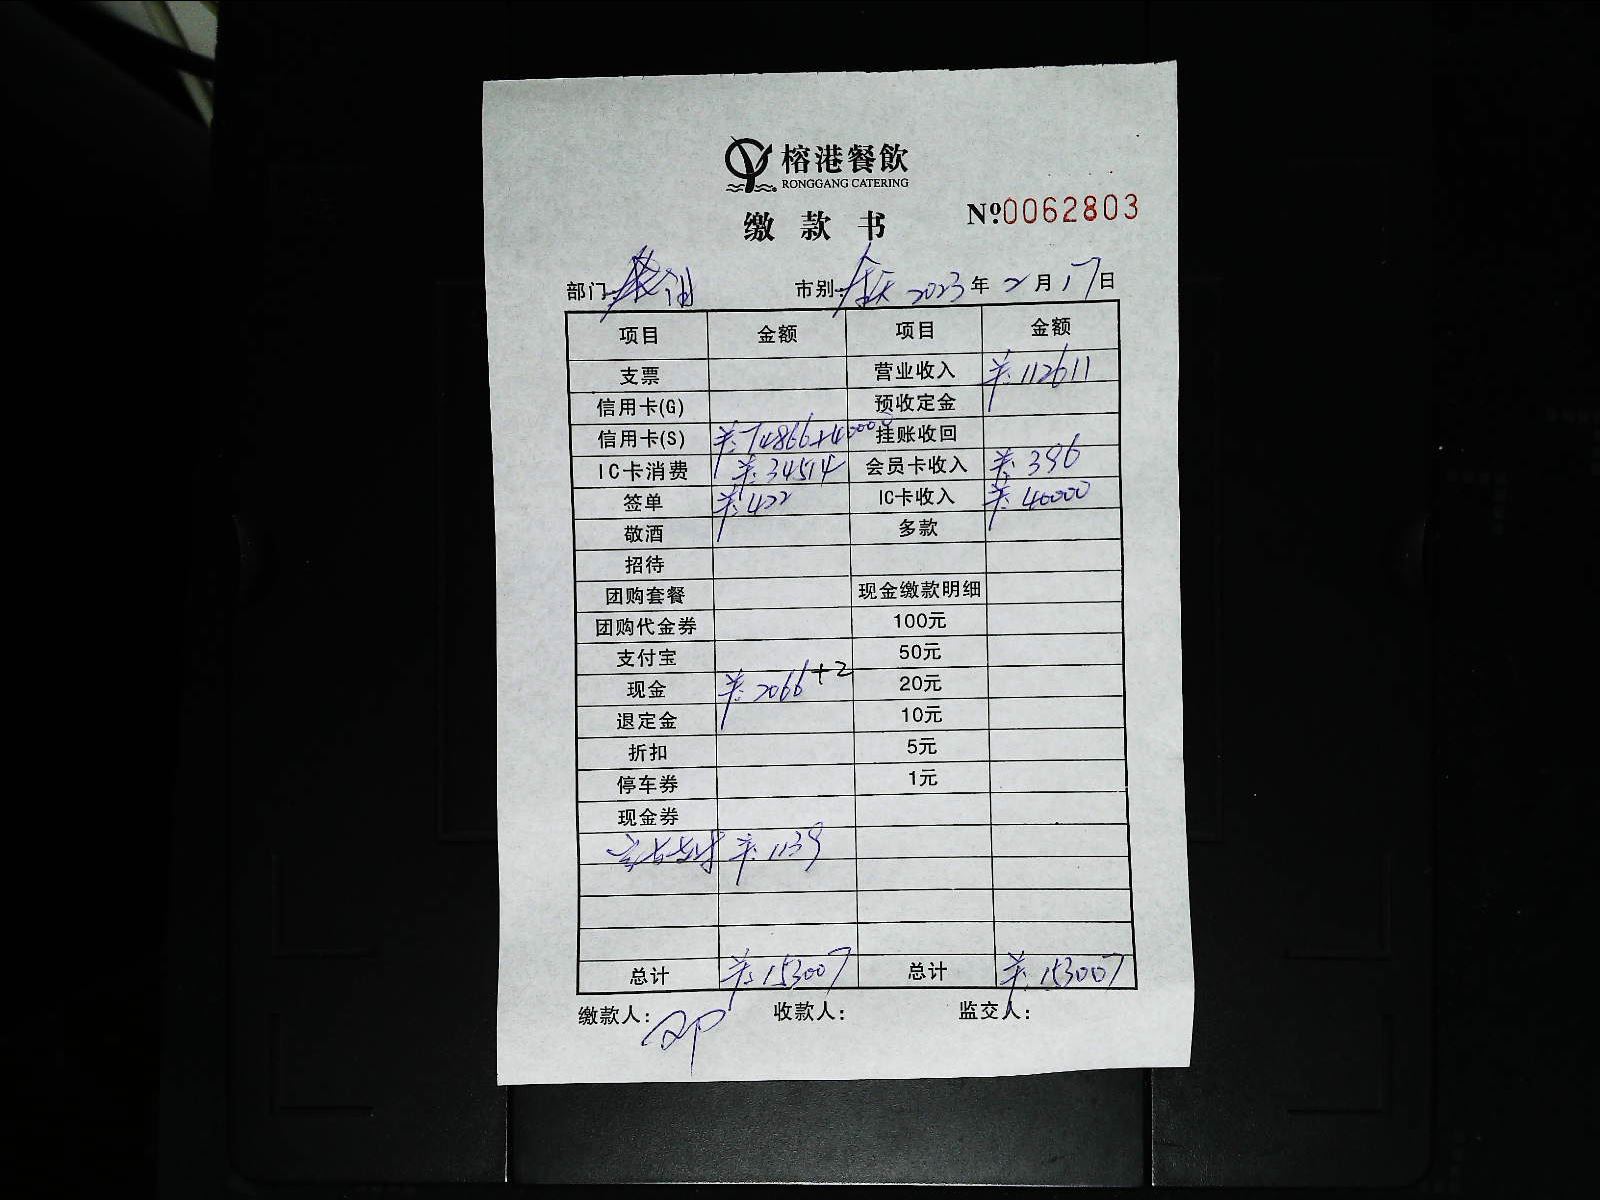 榕港餐飲
RONGGANG CATERING
缴款书 Nº0062803
部门: 市别:全天 2023年2月17日
项目 金额 项目 金额
支票 营业收入 ¥:112611
信用卡(G) 预收定金
信用卡(S) ¥:74866+40000 挂账收回
IC卡消费 ¥:34514 会员卡收入 ¥:396
签单 ¥:422 IC卡收入 ¥:40000
敬酒 多款
招待
团购套餐 现金缴款明细
团购代金券 100元
支付宝 50元
现金 ¥:2066+2 20元
退定金 10元
折扣 5元
停车券 1元
现金券
¥:1139
总计 ¥:153007 总计 ¥:153007
缴款人: 收款人: 监交人: